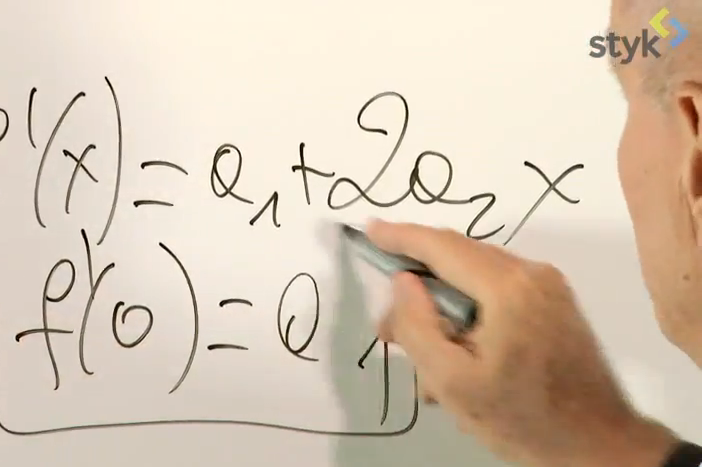 styk
p'(x) = a₁ + 2a₂x
f'(0) = a₁